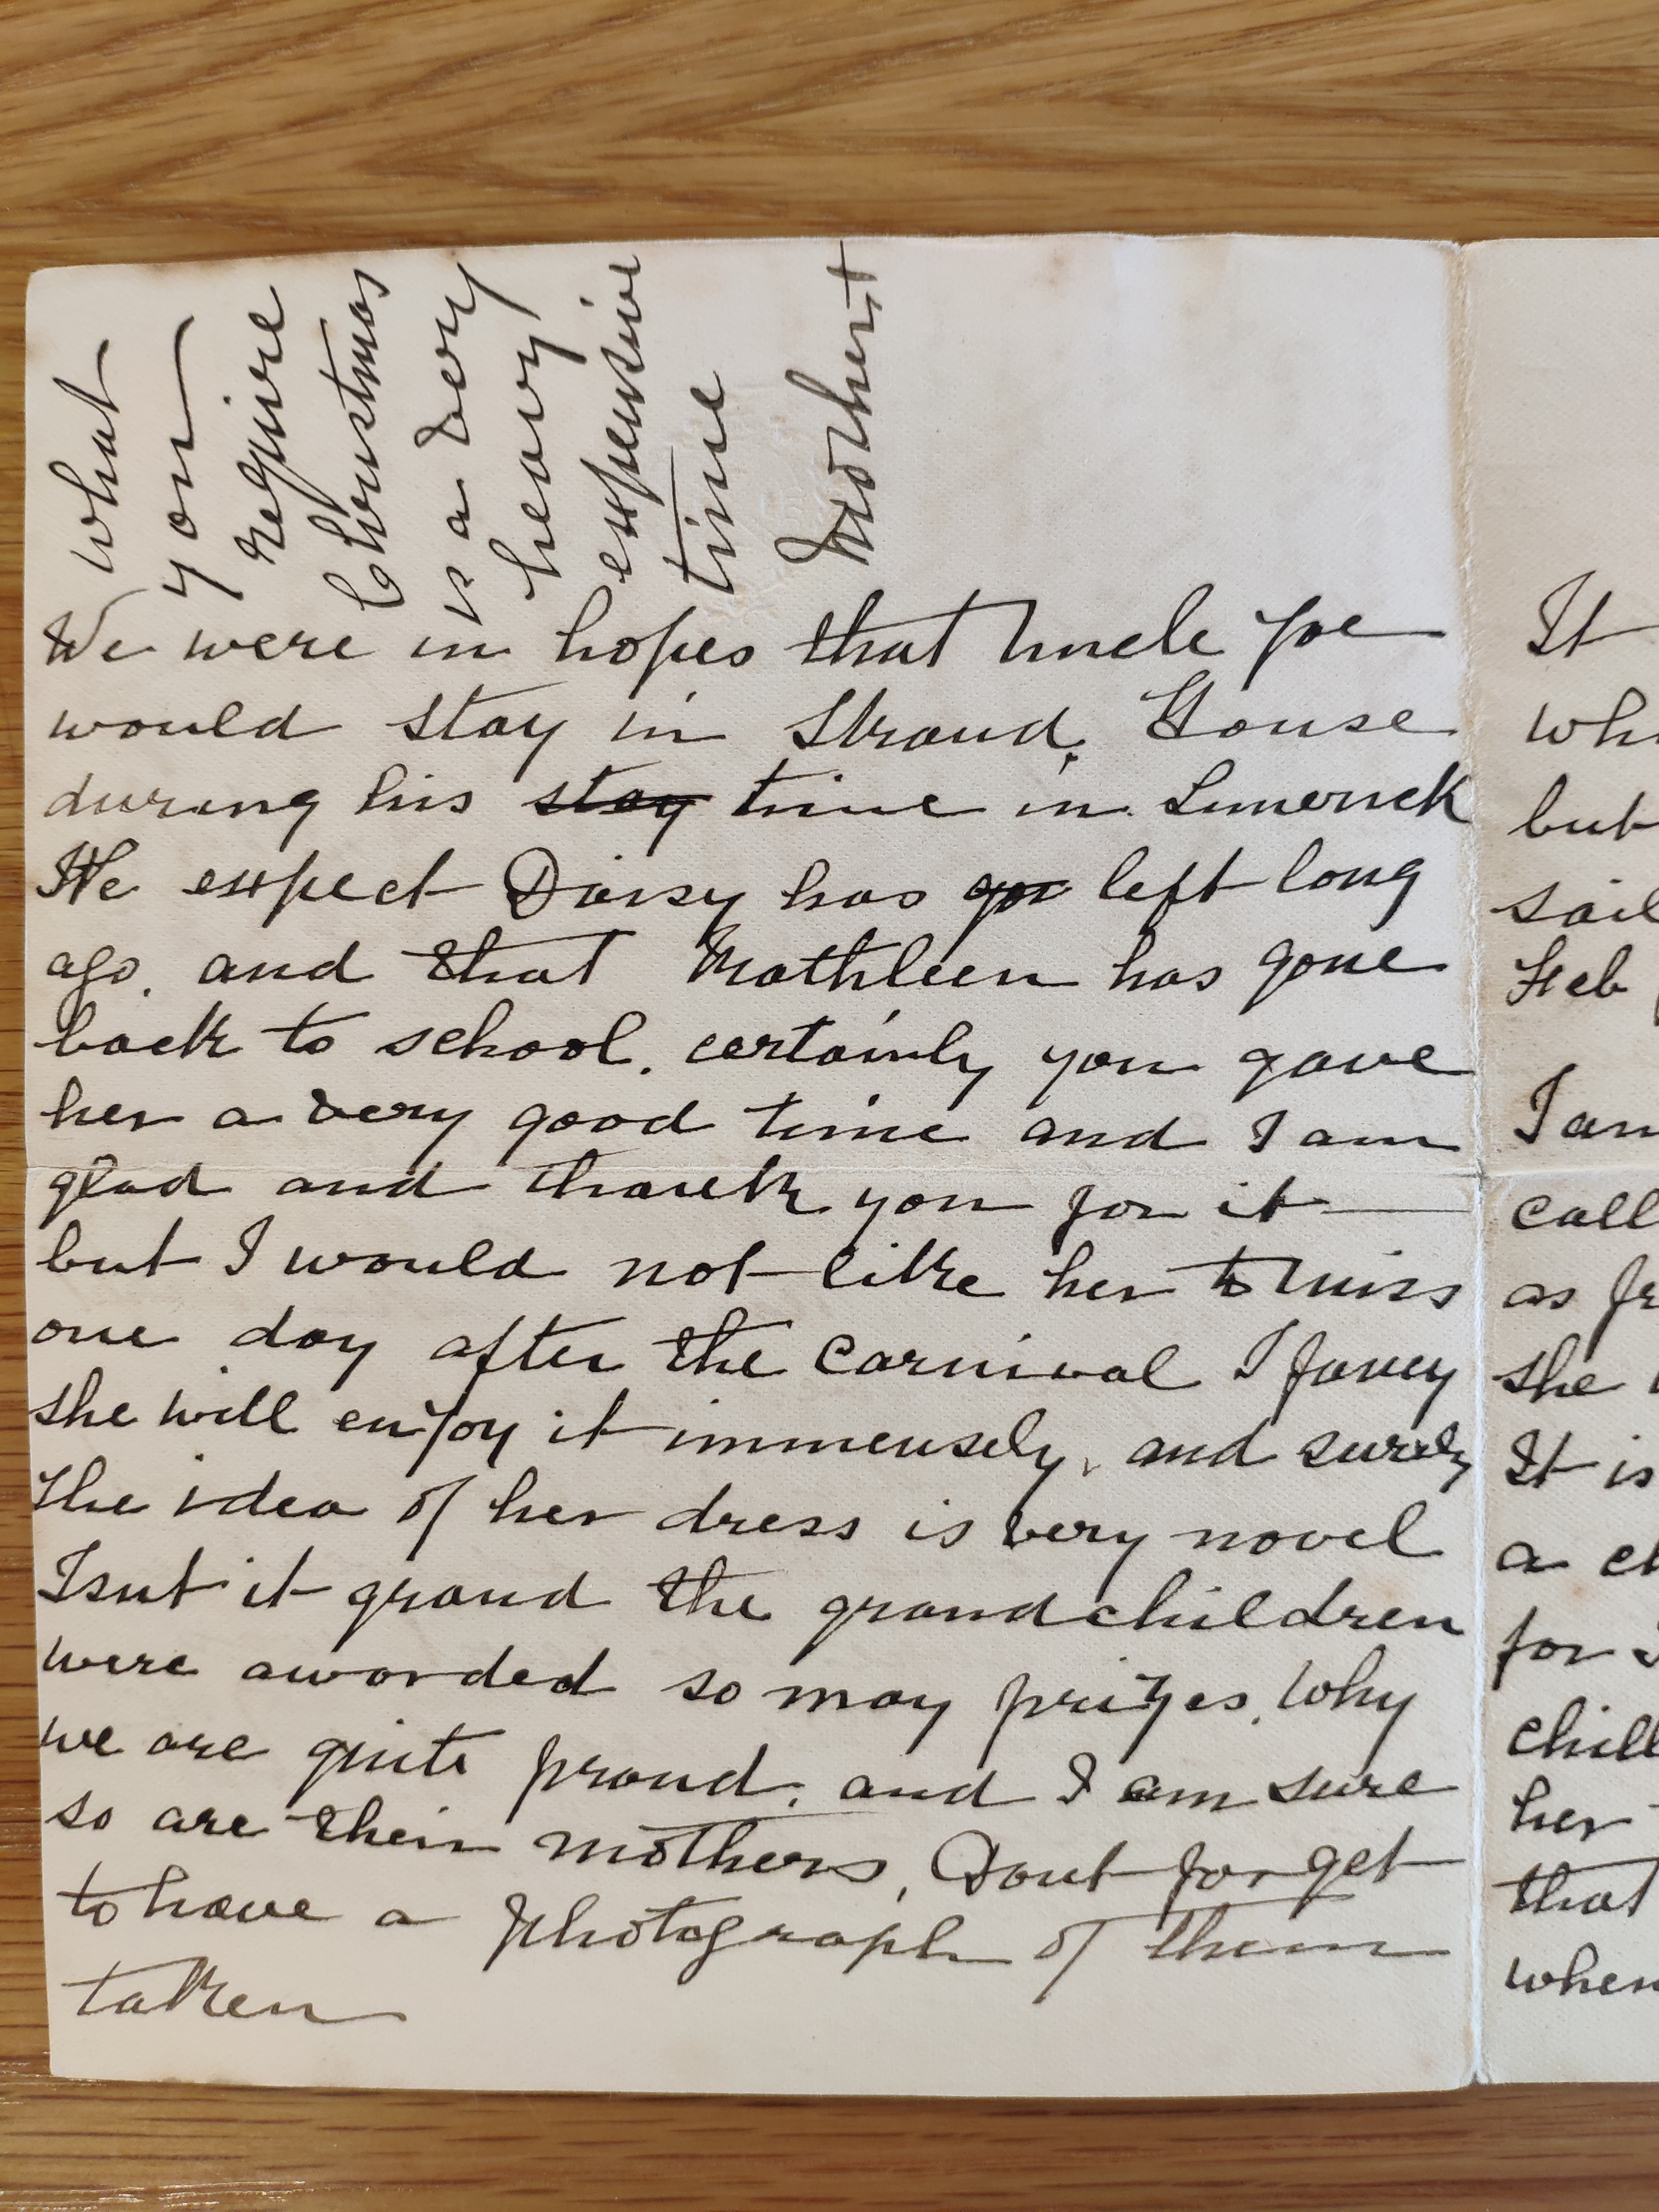 what
you
require
Christmas
is a very
heavy
expensive
time
Mother +
We were in hopes that Uncle Joe
would stay in Strand House
during his stay time in Limerick
We expect Daisy has gon left long
ago. and that Kathleen has gone
back to school. certainly you gave
her a very good time and I am
glad and thank you for it
but I would not like her to miss
one day after the Carnival I fancy
she will enjoy it immensely, and surely
the idea of her dress is very novel
Isnt it grand the grandchildren
were awarded so may prizes. Why
we are quite proud. and I am sure
so are their mothers, Dont forget
to have a photograph of them
taken
It
but
Feb
I am
call
as
she
It is
a
for
chill
her
that
when